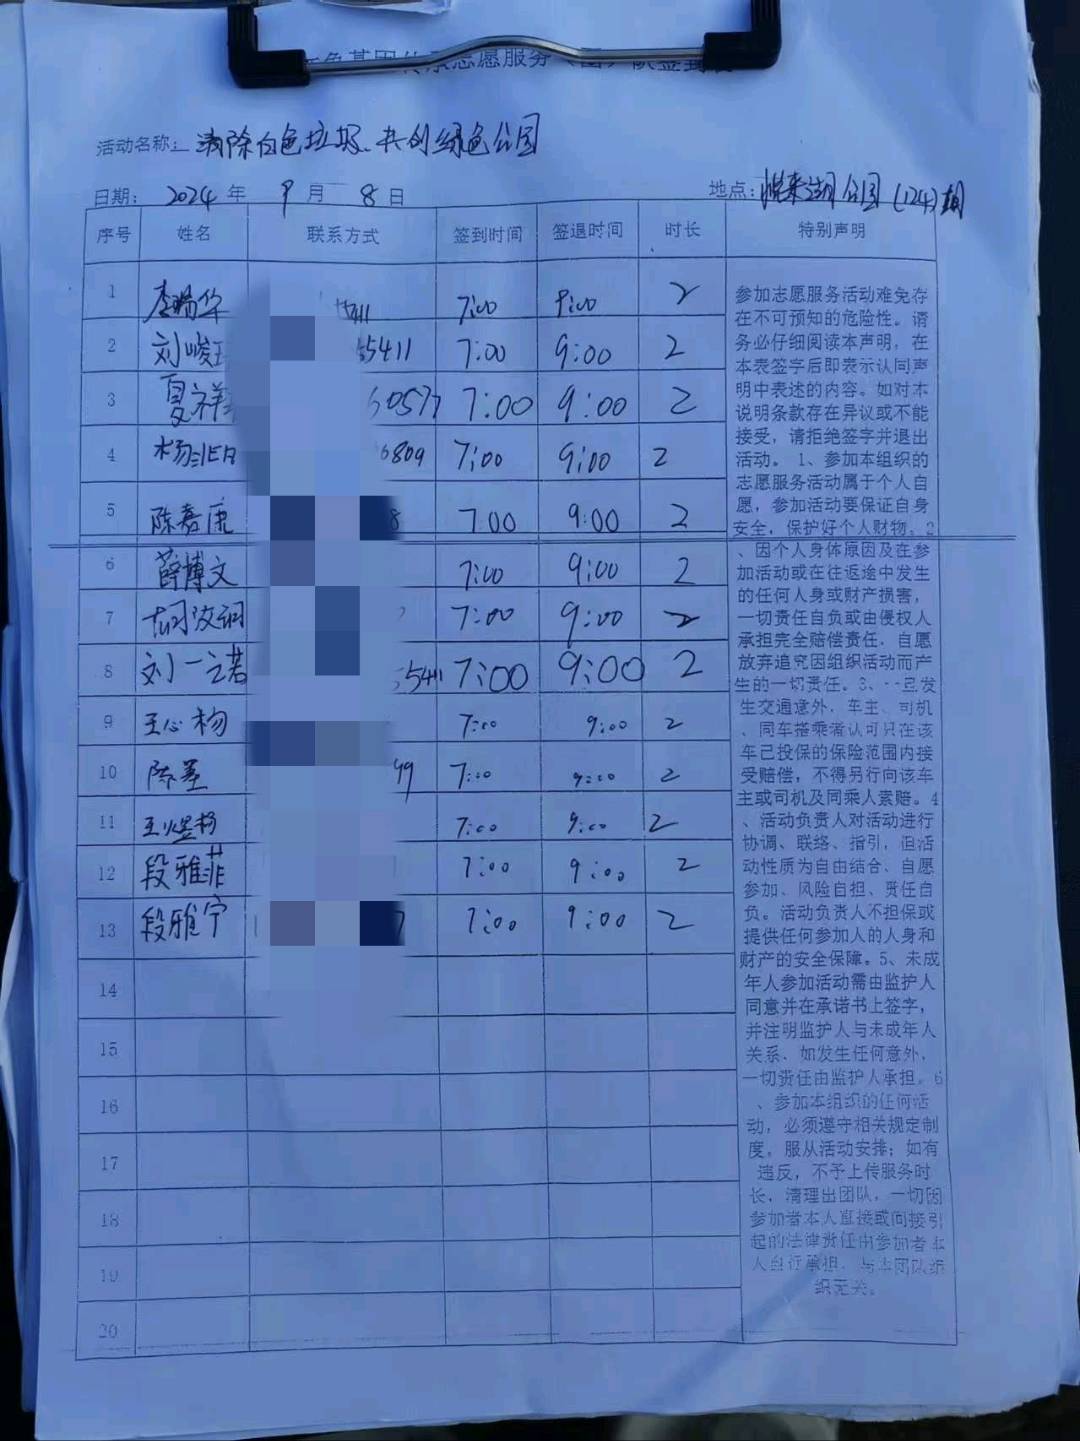 色基因传承志愿服务（团）队签到表
活动名称：清除白色垃圾、共创绿色公园
日期： 2024 年 9 月 8 日 地点：悦来湖公园（124）期
序号 姓名 联系方式 签到时间 签退时间 时长 特别声明
1 李瑞华 5411 7:00 9:00 2
2 刘峻 5411 7:00 9:00 2
3 夏祥 60577 7:00 9:00 2
4 杨 6809 7:00 9:00 2
5 陈嘉康 8 7:00 9:00 2
6 薛博文 7:00 9:00 2
7 胡汝钢 7:00 9:00 2
8 刘一诺 5411 7:00 9:00 2
9 王心杨 7:00 9:00 2
10 陈 99 7:00 9:00 2
11 王煜杨 7:00 9:00 2
12 段雅菲 7:00 9:00 2
13 段雅宁 7 7:00 9:00 2
14
15
16
17
18
19
20
参加志愿服务活动难免存
在不可预知的危险性。请
务必仔细阅读本声明，在
本表签字后即表示认同声
明中表述的内容。如对本
说明条款存在异议或不能
接受，请拒绝签字并退出
活动。1、参加本组织的
志愿服务活动属于个人自
愿，参加活动要保证自身
安全，保护好个人财物。2
、因个人身体原因及在参
加活动或在往返途中发生
的任何人身或财产损害，
一切责任自负或由侵权人
承担完全赔偿责任，自愿
放弃追究因组织活动而产
生的一切责任。3、一旦发
生交通意外，车主、司机
、同车搭乘者认可只在该
车已投保的保险范围内接
受赔偿，不得另行向该车
主或司机及同乘人索赔。4
、活动负责人对活动进行
协调、联络、指引，但活
动性质为自由结合、自愿
参加、风险自担、责任自
负。活动负责人不担保或
提供任何参加人的人身和
财产的安全保障。5、未成
年人参加活动需由监护人
同意并在承诺书上签字，
并注明监护人与未成年人
关系，如发生任何意外，
一切责任由监护人承担。6
、参加本组织的任何活
动，必须遵守相关规定制
度，服从活动安排；如有
违反，不予上传服务时
长，清理出团队，一切因
参加者本人直接或间接引
起的法律责任由参加者本
人自行承担，与本团队组
织无关。